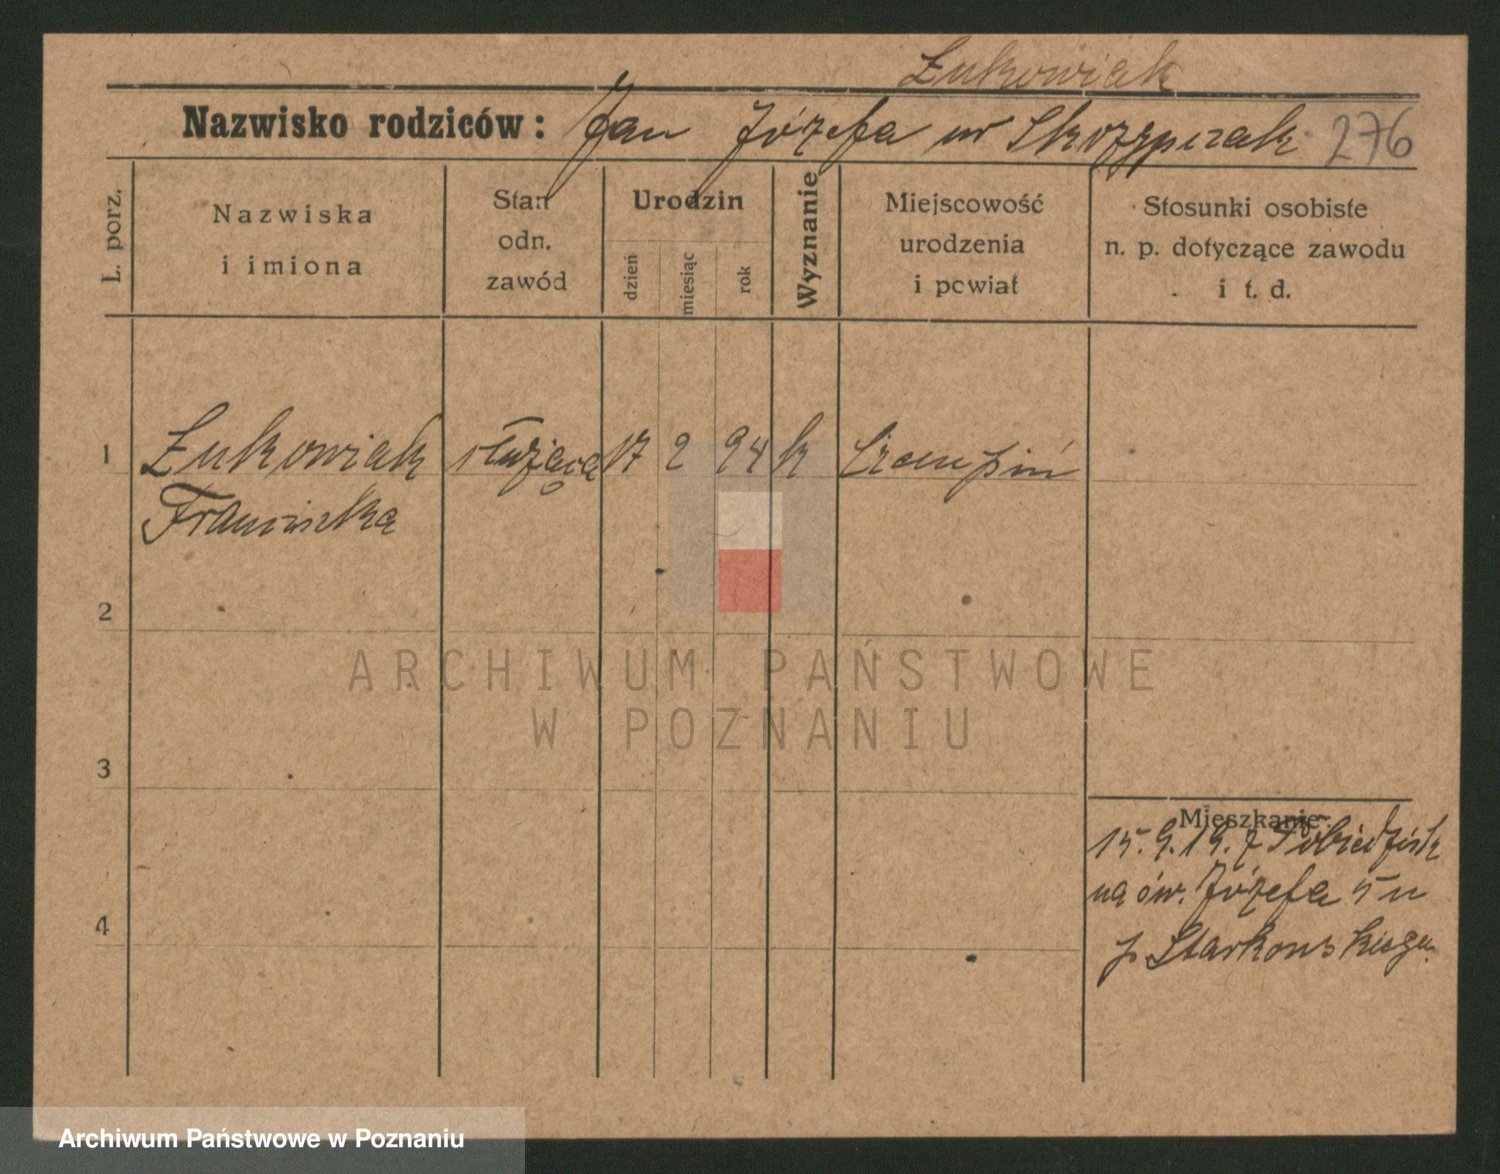 Żukowiak
Nazwisko rodziców: Jan Józefa ur Skrzypczak 276
L. porz.
Nazwiska
i imiona
Stan
odn.
zawód
Urodzin
dzień
miesiąc
rok
Wyznanie
Miejscowość
urodzenia
i powiat
Stosunki osobiste
n. p. dotyczące zawodu
i t. d.
1 Żukowiak służąca 17 2 94 k Czempiń
Franciszka
2
ARCHIWUM PAŃSTWOWE
W POZNANIU
3
Mieszkanie:
15.9.19. z Pobiedzisk
na św. Józefa 5 u
p. Starkowskiego.
4
Archiwum Państwowe w Poznaniu